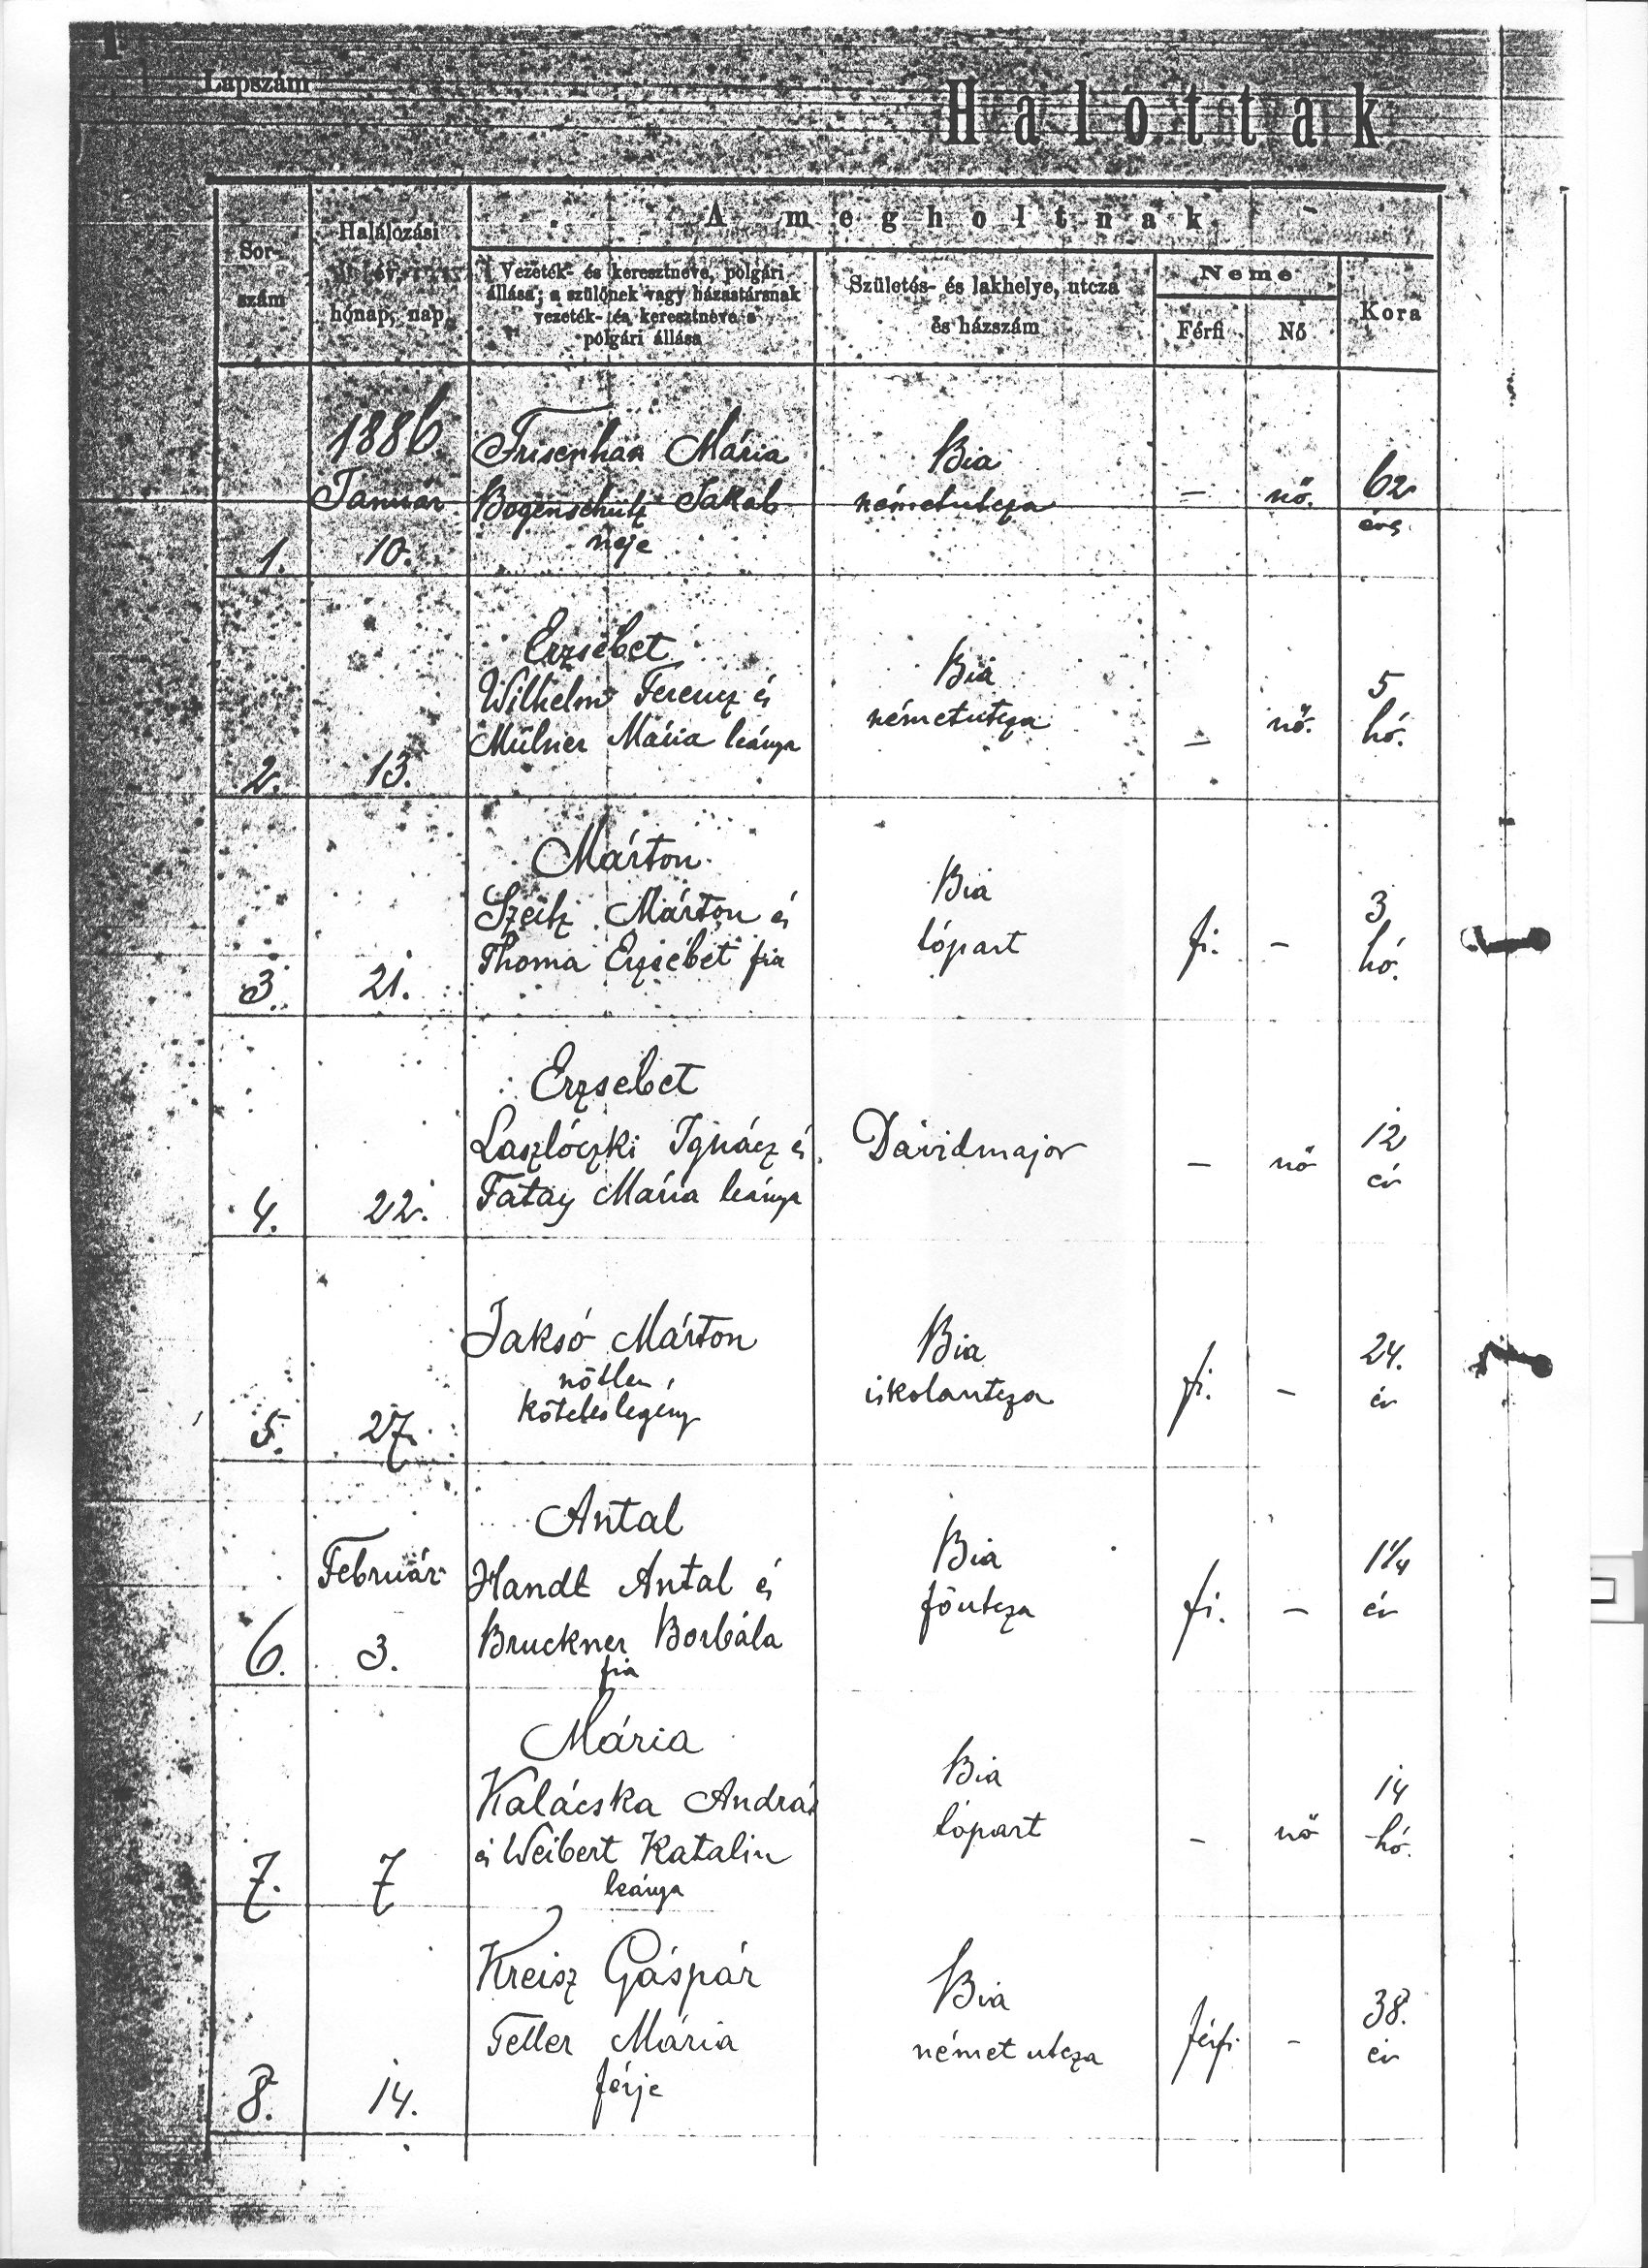 1
Lapszám
Halottak
Sor-
szám
Halálozási
év,
hónap, nap
A megholtnak
Vezeték- és keresztneve, polgári
állása; a szülőnek vagy házastársnak
vezeték- és keresztneve s
polgári állása
Születés- és lakhelye, utcza
és házszám
Neme
Férfi
Nő
Kora
1.
1886.
Január
10.
Frisenhan Mária
Bogenschütz Jakab
neje
Bia
németutcza
–
nő.
62
éves
2.
13.
Erzsébet
Wilhelm Ferencz és
Mülner Mária leánya
Bia
németutcza
–
nő.
5
hó.
3.
21.
Márton
Szeitz Márton és
Thoma Erzsébet fia
Bia
lópart
fi.
–
3
hó.
4.
22.
Erzsebet
Laszlóczki Ignácz és
Tatay Mária leánya
Dávidmajor
–
nő
12
év
5.
27.
Jaksó Márton
nőtlen,
köteleslegény
Bia
iskolautcza
fi.
–
24.
év
6.
Február
3.
Antal
Handl Antal és
Bruckner Borbála
fia
Bia
főutcza
fi.
–
1 1/4
év
7.
7
Mária
Kalácska András
és Weibert Katalin
leánya
Bia
lópart
–
nő
14
hó.
8.
14.
Kreisz Gáspár
Teller Mária
férje
Bia
német utcza
férfi
–
38.
év